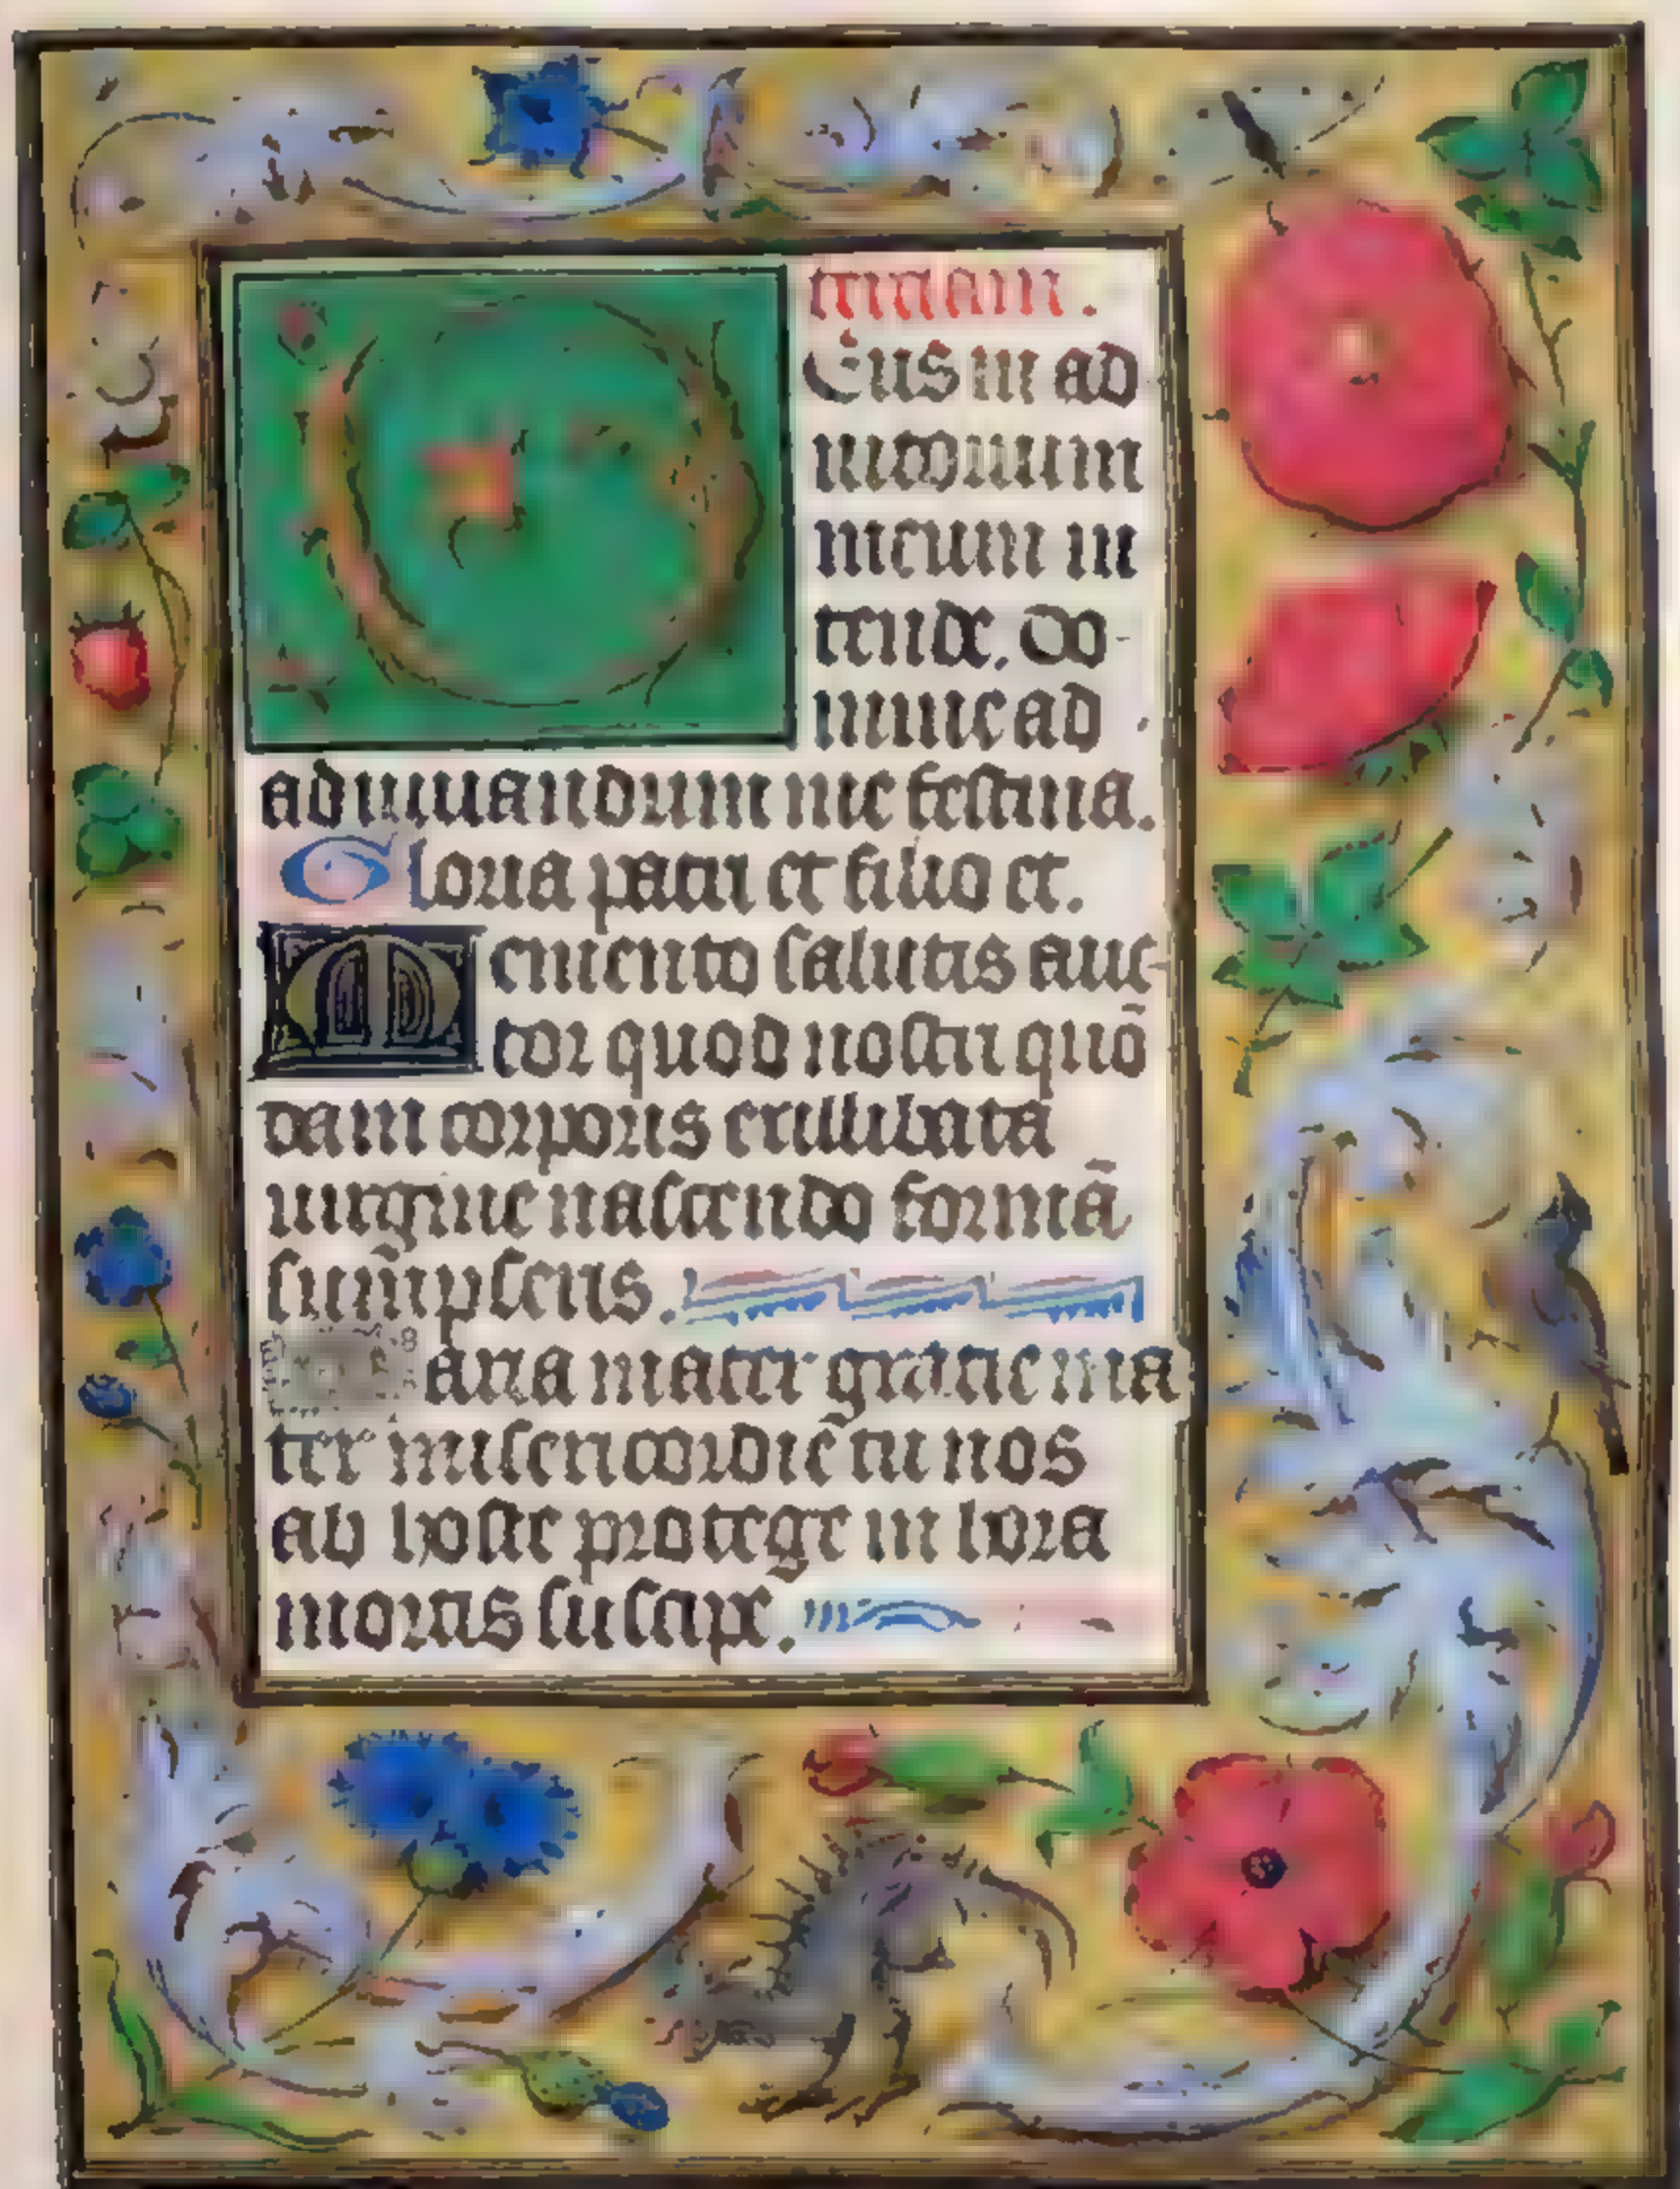 terciam.
Eus in ad
iutorium
meum in
tende. Do-
mine ad
adiuuandum me festina.
Gloria patri et filio et.
Memento salutis auc-
tor quod nostri quō
dam corporis ex illibata
uirgine nascendo formā
sum̄pseris.
aria mater gratie ma
ter misericordie tu nos
ab hoste protege in hora
mortis suscipe.